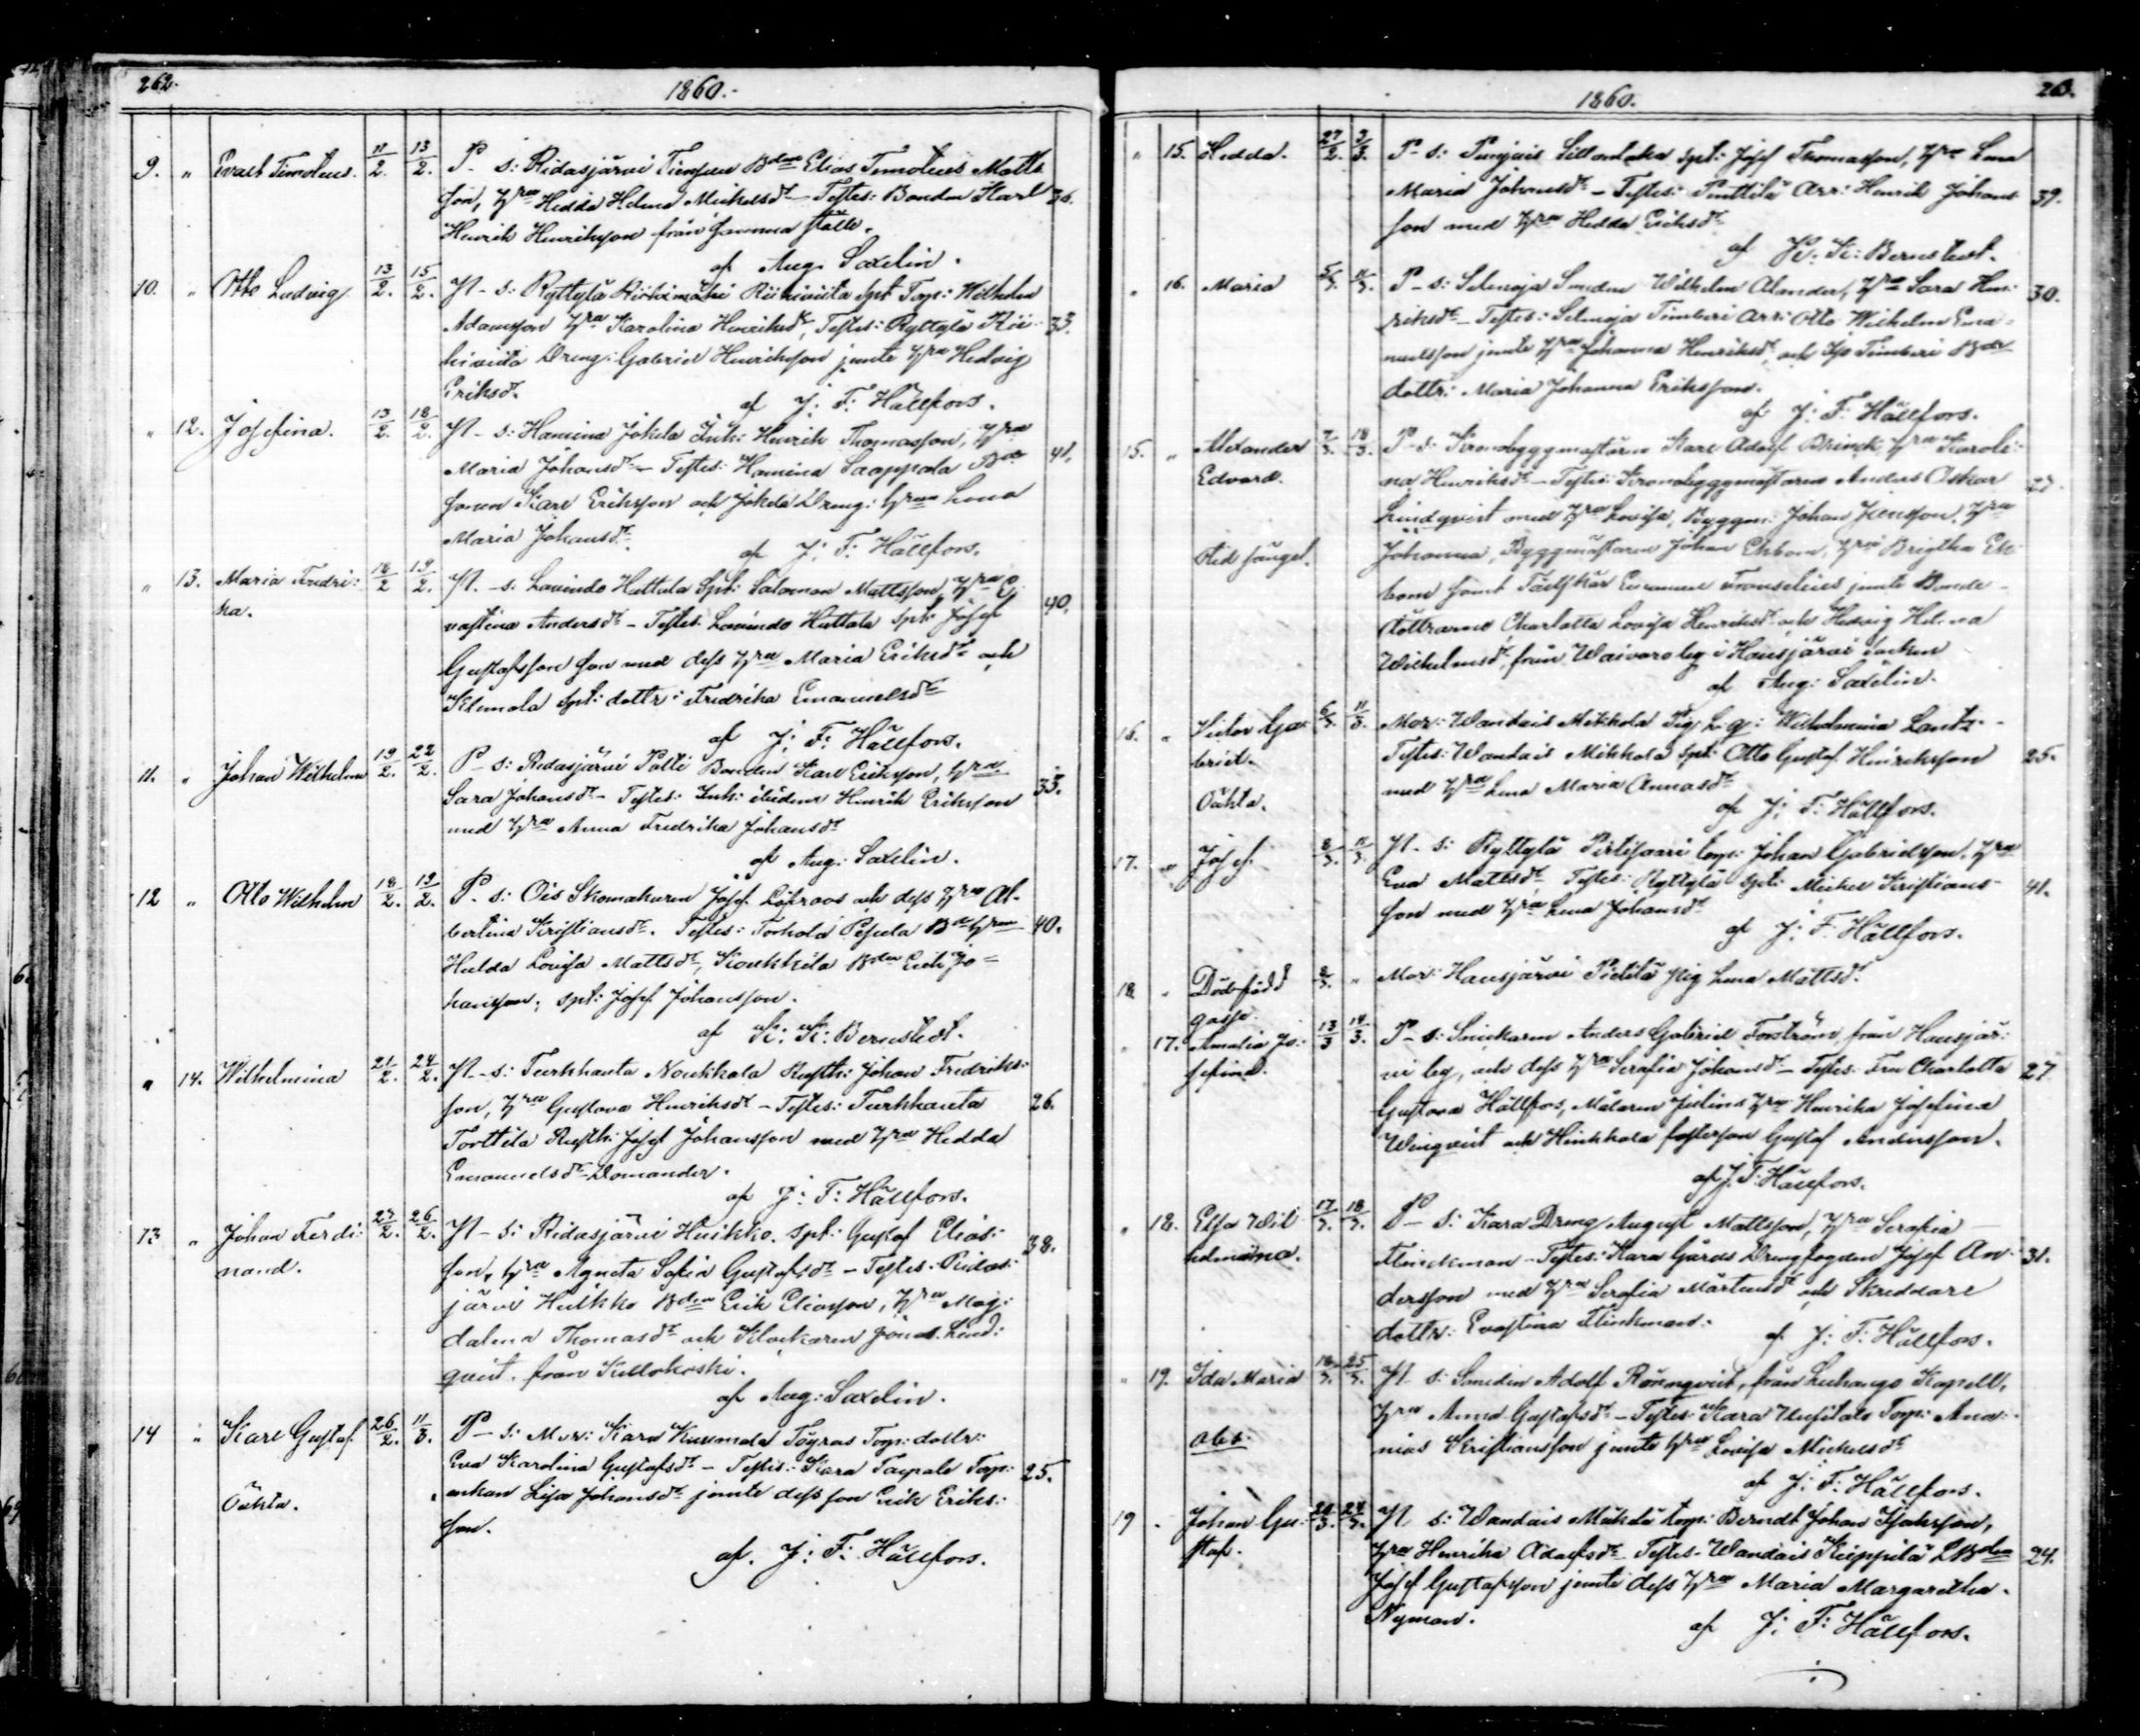 262.
1860.-
9. " Evart Timoteus. 11/2. 13/2. P- s: Ridasjärvi Bden Elias Timoteus Matts
son, hru Hedda Helena Mickelsdr - Testes: Bonden Karl 36.
Henrik Henriksson från samma ställe.
af Aug. Saxelin.
10. " Otto Ludvig 13/2. 15/2. Pl- s: Ryttylä Riihimäki Riihiviita Spt Torp: Wilhelm
Adamsson hru Karolina Henriksdr, Testes: Ryttylä Rii- 33.
hiviita Dreng: Gabriel Henriksson jemte hru Hedvig
Eriksdr.
af J: F: Hällfors.
" 12. Josefina. 13/2. 18/2. Pl- s: Hamina Jokela Inh: Henrik Thomasson, hru
Maria Johansdr - Testes: Hamina Saappala Bde 41.
sonen Karl Eriksson och Jokela Dreng: hrun Lena
Maria Johansdr.
af J: F: Hällfors.
" 13. Maria Fredri: 18/2 19/2. Pl.- s: Lavindo Huttula Spt: Salomon Mattsson, hru E:
ka.
vastina Andersdr - Testes: Lavindo Huttala Spt: Josef 40.
Gustafsson son med dess hru Maria Eriksdr och
Spt: dottr: Fredrika Emanuelsdr
af J: F: Hällfors.
11. " Johan Wilhelm 19/2. 22/2. P- s: Ridasjärvi Patti Bonden Karl Eriksson, hru
Sara Johansdr - Testes: Inh: Henrik Eriksson 33.
med hru Anna Fredrika Johansdr
af Aug: Saxelin.
12 " Otto Wilhelm 18/2. 19/2. P- s: Ois Skomakaren Josef Löfroos och dess hru Al-
bertina Kristiansdr. Testes: Torhola Pesula Bde hrun 40.
Hulda Lovisa Mattsdr, Koukkila Bden Erik Jo=
hansson, spt: Josef Johansson.
af K: K: Bernstedt.
" 14. Wilhelmina 21/2. 24/2. Pl- s: Turkhauta Noukkala Rusth: Johan Fredriks:
son, hru Gustava Henriksdr - Testes: Turkhauta 26.
Torttila Rusth: Josef Johansson med hru Hedda
Emanuelsdr Domander.
af J: F: Hällfors.
13 " Johan Ferdi: 23/2. 26/2. Pl- s: Ridasjärvi Huikko. Spt: Gustaf Elias: 38.
nand.
son, hru Agneta Sofia Gustafsdr - Testes: Ridas:
järvi Huikko Bden Erik Eliasson, hru Mag:
dalena Thomasdr och Klockaren Jonas Lind:
qvist från Kellokoski.
af Aug: Saxelin.
14 " Karl Gustaf. 26/2. 11/3. P- s: Mor: Kara Töyras Torp: dottr:
Eva Karolina Gustafsdr - Testes: Kara Taipale Torp: 25.
Oäkta.
enkan Lisa Johansdr jemte dess son Erik Eriks:
son.
af. J: F: Hällfors.
1860.
263.
" 15. Hedda. 27/2. 3/3. P- s: Punjais Sillanlaka Spt: Josef Thomasson, hru Lena
Maria Johansdr - Testes: Punttila Arr: Henrik Johans 39.
son med hru Hedda Eriksdr
af K: K: Bernstedt.
" 16. Maria 5/3. 11/3. P- s: Selenoja Smeden Wilhelm Alander, hru Sara Hen: 30.
riksdr - Testes: Selenoja Timberi Arr: Otto Wilhelm Ema=
nuelsson jemte hru Johanna Henriksdr, och Timberi Bde
dottr: Maria Johanna Eriksson.
af J: F: Hällfors.
15. " Alexander 7/3. 18/3. P- s: Kronobyggmästaren Karl Adolf Brinck, hru Karoli:
Edvard.
na Henriksdr - Testes: Kronobyggmästaren Anders Oskar 27.
Lindqvist med hru Lovisa, Byggm: Johan Jönsson, hru
Johanna, Byggmästaren Johan Ekbom, hru Brigitha Ek
bom samt Fältskär jemte Bonde-
döttrarne Charlotta Lovisa Henriksdr och Hedvig Helena
Wilhelmsdr, från i Hausjärvi Socken
af Aug: Saxelin.
16. " Victor Ga: 6/3. 11/3. Mor: Wandais Mikkola Pig: Wilhelmina Lantz.-
briel.
Testes: Wandais Mikkola Spt: Otto Gustaf Henriksson 25.
Oäkta.
med hru Lena Maria Annasdr
af J: F: Hällfors.
17. " Josef 8/3. 11/3. Pl- s: Ryttylä Pirtisaari Torp: Johan Gabrielsson, hru
Eva Mattsdr, Testes: Ryttylä Spt: Mickel Kristians- 41.
son med hru Lena Johansdr
af J: F: Hällfors.
18. " Dödfödd 8/3. " Mor: Hausjärvi Pietilä Pig Lena Mattsdr.
gosse.
" 17. Amalia Jo: 13/3 14/3. P- s: Snickaren Anders Gabriel Forström från Hausjär:
sefina.
vi by, och dess hru Serafia Johansdr - Testes: Fru Charlotta 27
Gustava Hällfors, Målaren Julins hru Henrika Josefina
Winqvist och Hinkkala fosterson Gustaf Andersson.
af J. F: Hällfors.
" 18. Elsa Wil 17/3. 18/3. P- s: Kara Dreng August Mattsson, hru Serafia
helmina.
Flinckman - Testes: Kara Gårds Drengfogden Josef An- 31.
dersson med hru Serafia Mårtensdr och Skreddare
dottr: Evastina Flinkman:
af J: F: Hällfors.
" 19. Ida Maria 18/3. 25/3. Pl- s: Smeden Adolf Rönnqvist, från Leuhangs Kapell,
hru Anna Gustafsdr - Testes: Kara Uusitalo Torp: Ana:
obs:
nias Kristiansson jemte hru Lovisa Mickelsdr
af J: F: Hällfors.
19 " Johan Gu: 20/3. 24/3. Pl- s: Wandais Mäkelä Torp: Berndt Johan Isaksson,
staf.
hru Henrika Adolfsdr Testes: Wandais Kieppilä LBden 24.
Josef Gustafsson jemte dess hru Maria Margaretha
Nyman.
af J: F: Hällfors.